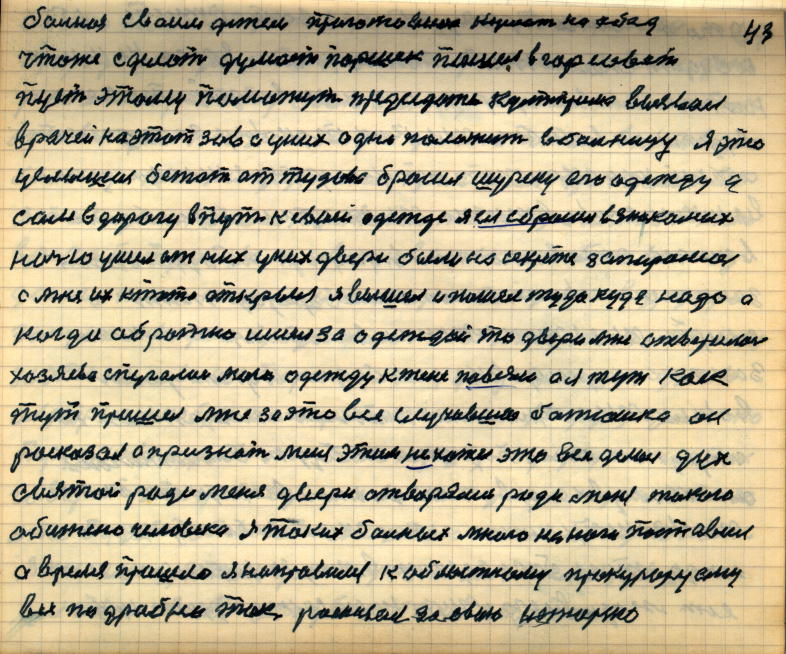 43
больная своим детям приготовила кушать на обед
что же сделать думает Паршек пошел в горсовет
пусть этому поможут председатель
врачей на этот зов а у них одно положить в больницу я это
услышал бежать оттудова бросил шурину его одежду а
сам в дорогу в путь к своей одежде я ее сбросил в знакомых
ночью ушел от них у них двери были на секрете запирались
а мне их кто то открыл я вышел и пошел туда куда надо а
когда обратно шел за одеждой то двери мне отворились
хозяева спугались мою одежду к тене а я тут как
тут пришел мне за это все случившее батюшка он
росказал а признать меня этим не хотел это все делал дух
святой ради меня двери отворяли ради меня такого
обижено человека я таких больных много на ноги поставил
а время пришло я направился к областному прокурору ему
все подрабно так росказал за свою историю